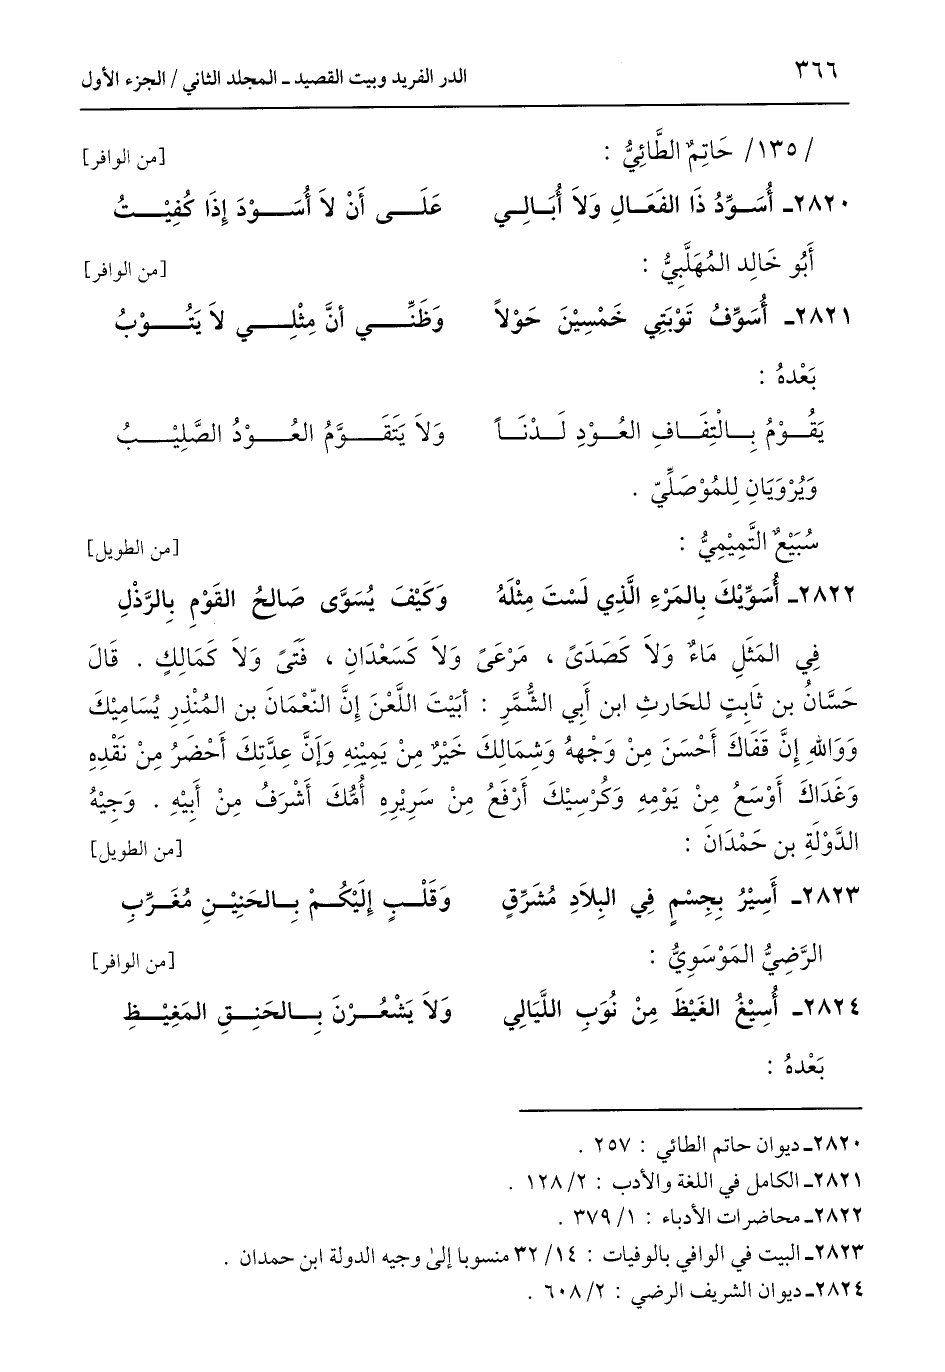 ٣٦٦ الدر الفريد وبيت القصيد ـ المجلد الثاني / الجزء الأول
/ ١٣٥/ حَاتِمٌ الطَّائِيُّ : [من الوافر]
٢٨٢٠ـ أُسَــوِّدُ ذَا الفَعَــالِ وَلاَ أُبَــالِــي عَلَــى أَنْ لاَ أُسَــوْدَ إِذَا كُفِيْــتُ
أَبُو خَالِد المُهَلَّبِيُّ : [من الوافر]
٢٨٢١ـ أُسَوِّفُ تَوْبَتِي خَمْسِيْنَ حَوْلاً وَظَنِّــي أنَّ مِثْلِــي لاَ يَتُــوْبُ
بَعْدهُ :
يَقُــوْمُ بِــالْثِقَــافِ العُــوْدِ لَــدْنَــاً وَلاَ يَتَقَــوَّمُ العُــوْدُ الصَّلِيْــبُ
وَيُرْوَيَانِ لِلمُوْصَلِّيّ .
سُبَيْعٌ التَّمِيْمِيُّ : [من الطويل]
٢٨٢٢ـ أُسَوِّيْكَ بِالمَرْءِ الَّذِي لَسْتَ مِثْلَهُ وَكَيْفَ يُسَوَّى صَالِحُ القَوْمِ بِالرَّذْلِ
فِي المَثَلِ مَاءٌ وَلاَ كَصَدَىً ، مَرْعَىً وَلاَ كَسَعْدَانِ ، فَتَىً وَلاَ كَمَالِكٍ . قَالَ
حَسَّانُ بن ثَابِتٍ للحَارثِ ابن أَبِي الشُّمَّرِ : أبَيْتَ اللَّعْنَ إِنَّ النّعْمَانَ بن المُنْذِرِ يُسَامِيْكَ
وَوَاللهِ إِنَّ قَفَاكَ أَحْسَنَ مِنْ وَجْههُ وَشمَالِكَ خَيْرٌ مِنْ يَمِيْنِهِ وَإَنَّ عِدَّتِكَ أَحْضَرُ مِنْ نَقْدِهِ
وَغَدَاكَ أَوْسَعُ مِنْ يَوْمِهِ وَكُرْسِيْكَ أَرْفَعُ مِنْ سَرِيْرِهِ أُمُّكَ أَشْرَفُ مِنْ أَبِيْهِ . وَجِيْهُ
الدَّوْلَةِ بن حَمْدَانَ : [من الطويل]
٢٨٢٣ـ أَسِيْرُ بِجِسْمٍ فِي البِلاَدِ مُشَرِّقٍ وَقَلْــبٍ إِلَيْكُــمْ بِــالحَنِيْــنِ مُغَــرِّبِ
الرَّضِيُّ المَوْسَوِيُّ : [من الوافر]
٢٨٢٤ـ أُسِيْغُ الغَيْظَ مِنْ نُوَبِ اللَّيَالِي وَلاَ يَشْعُــرْنَ بِــالحَنِــقِ المَغِيْــظِ
بَعْدهُ :
٢٨٢٠ـ ديوان حاتم الطائي : ٢٥٧ .
٢٨٢١ـ الكامل في اللغة والأدب : ٢/ ١٢٨ .
٢٨٢٢ـ محاضرات الأدباء : ١/ ٣٧٩ .
٢٨٢٣ـ البيت في الوافي بالوفيات : ١٤/ ٣٢ منسوبا إلىٰ وجيه الدولة ابن حمدان .
٢٨٢٤ـ ديوان الشريف الرضي : ٢/ ٦٠٨ .